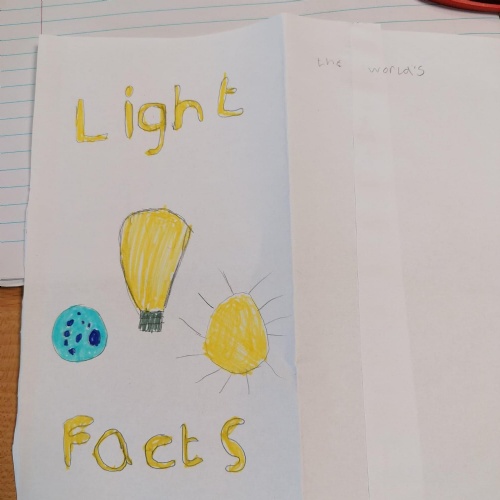 Light
Facts
the world's